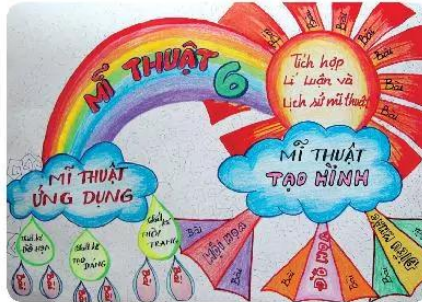 MĨ THUẬT 6
Tích hợp
Lí luận và
Lịch sử mĩ thuật
Bài
Bài
Bài
Bài
Bài
Bài
Bài
Bài
MĨ THUẬT
ỨNG DỤNG
MĨ THUẬT
TẠO HÌNH
Thiết kế
ĐỒ HỌA
Thiết kế
TẠO DÁNG
Thiết kế
THỜI TRANG
Bài
Bài
Bài
Bài
Bài
Bài
HỘI HỌA
Bài
Bài
ĐỒ HỌA
Bài
Bài
ĐIÊU KHẮC
Bài
Bài